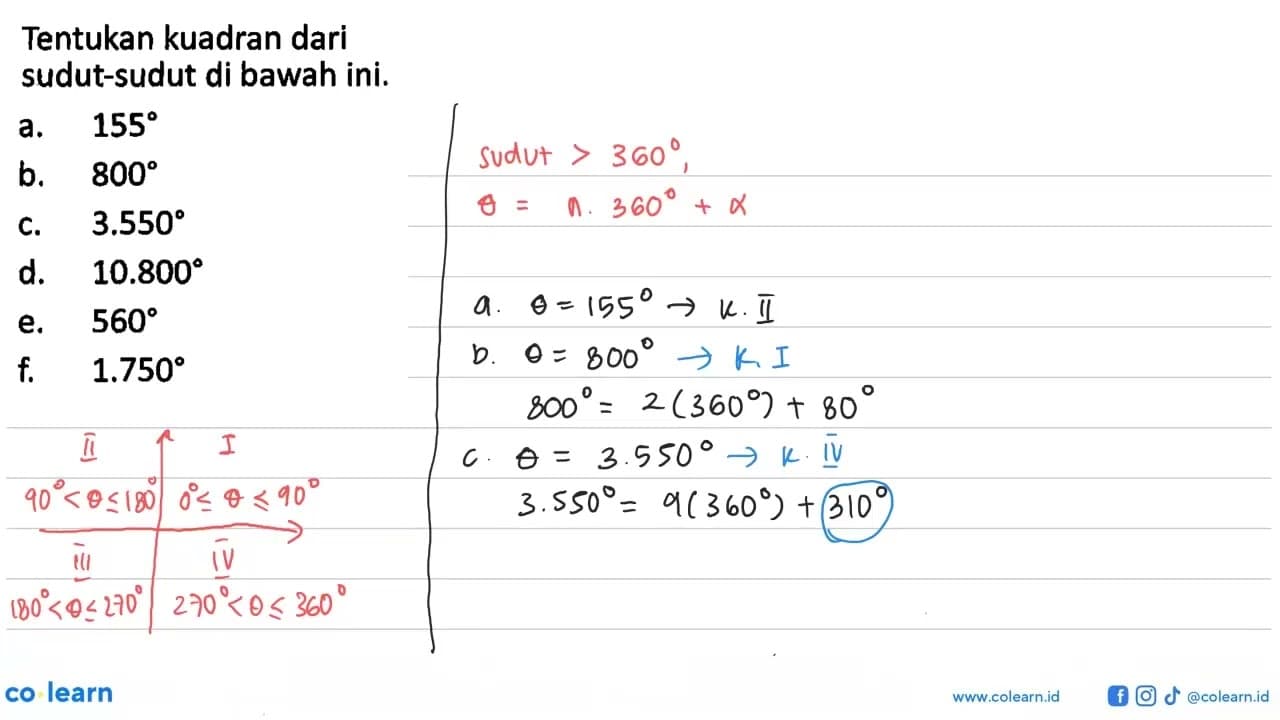 Tentukan kuadran dari
sudut-sudut di bawah ini.
a. 155°
b. 800°
c. 3.550°
d. 10.800°
e. 560°
f. 1.750°
II I
90° < θ ≤ 180° 0° ≤ θ ≤ 90°
III IV
180° < θ ≤ 270° 270° < θ ≤ 360°
sudut > 360°,
θ = n. 360° + α
a. θ = 155° → K. II
b. θ = 800° → K. I
800° = 2(360°) + 80°
c. θ = 3.550° → K. IV
3.550° = 9(360°) + 310°
co learn
www.colearn.id
@colearn.id